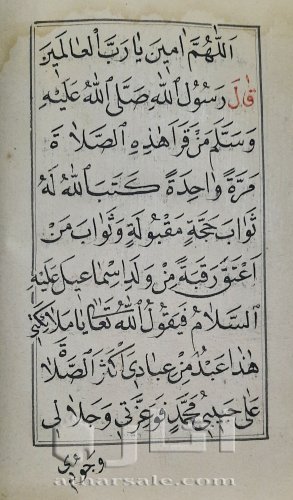 اَللّٰهُمَّ اٰمِينَ يَا رَبَّ الْعَالَمِينَ
قَالَ رَسُولُ اللّٰهِ صَلَّى اللّٰهُ عَلَيْهِ
وَسَلَّمَ مَنْ قَرَأَ هٰذِهِ الصَّلَاةَ
مَرَّةً وَاحِدَةً كَتَبَ اللّٰهُ لَهُ
ثَوَابَ حَجَّةٍ مَقْبُولَةٍ وَثَوَابَ مَنْ
اَعْتَقَ رَقَبَةً مِنْ وَلَدِ اِسْمَاعِيلَ عَلَيْهِ
السَّلَامُ فَيَقُولُ اللّٰهُ تَعَالٰى يَا مَلَائِكَتِى
هٰذَا عَبْدٌ مِنْ عِبَادِى اَكْثَرَ الصَّلَاةَ
عَلٰى حَبِيبِى مُحَمَّدٍ فَوَعِزَّتِى وَجَلَالِى
وَجُودِى
atharsale.com